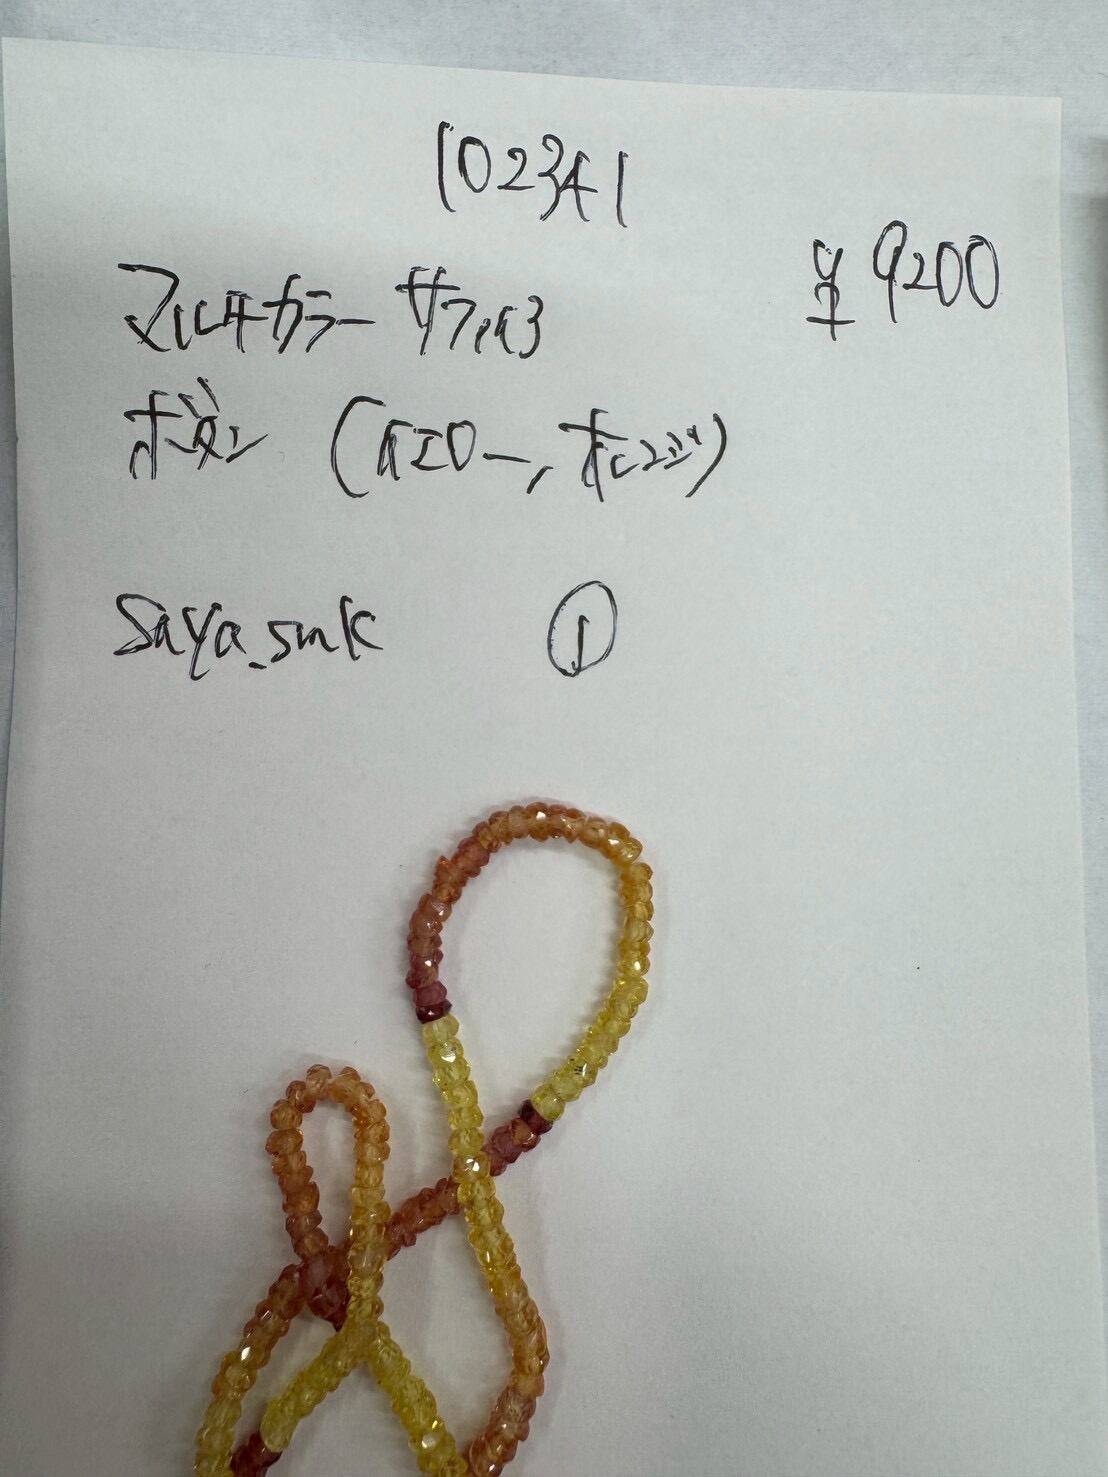 102341
¥9200
マルチカラーサファイア
ボタン (イエロー, オレンジ)
saya_smk ①